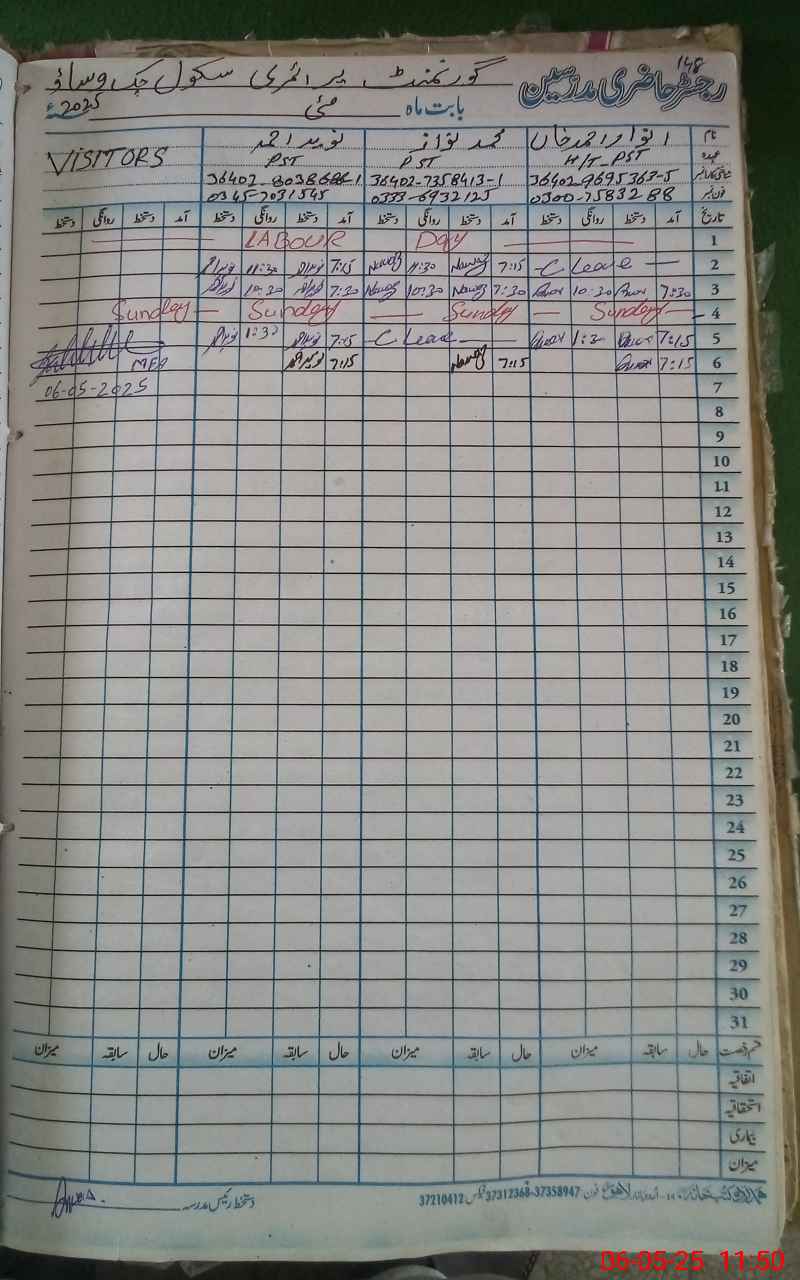 148
رجسٹر حاضری مدرسین
گورنمنٹ پرائمری سکول چک وساؤ
بابت ماہ مئی 2025ء
نام انوار احمد خان محمد نواز نوید احمد VISITORS
عہدہ H/T_PST PST PST
36402-9695363-5 36402-7358413-1
0300-7583288 0333-6932125 0345-7031545
تاریخ آمد دستخط روانگی دستخط آمد دستخط روانگی دستخط آمد دستخط روانگی دستخط آمد دستخط روانگی دستخط
1 LABOUR Day
2 C Leave 7:15 Nawaz 11:30 Nawaz 7:15 نوید احمد 11:30 نوید احمد
3 7:30 Anwar 10:30 Anwar 7:30 Nawaz 10:30 Nawaz 7:30 نوید احمد 10:30 نوید احمد
4 Sunday Sunday Sunday Sunday
5 7:15 Anwar 1:30 Anwar C Leave 7:15 نوید احمد 1:30 نوید احمد
6 7:15 Anwar 7:15 Nawaz 7:15 نوید احمد MEA
7 06-05-2025
8
9
10
11
12
13
14
15
16
17
18
19
20
21
22
23
24
25
26
27
28
29
30
31
قسم رخصت حال سابقہ میزان حال سابقہ میزان حال سابقہ میزان حال سابقہ میزان
اتفاقیہ
استحقاقیہ
بیماری
میزان
فون: 37358947-37312368 فیکس: 37210412
دستخط رئیس مدرسہ
06-05-25 11:50